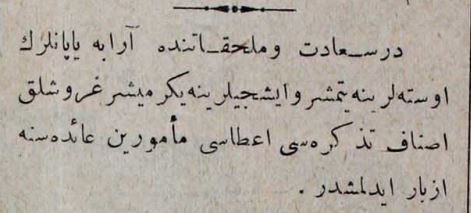 درسعادت وملحقاتنده آرابه یاپانلرك
اوسته لرینه یتمشر وایشجیلرینه یكرمیشر غروشلق
اصناف تذكره سی اعطاسی مأمورین عائده سنه
ازبار ایدلمشدر .